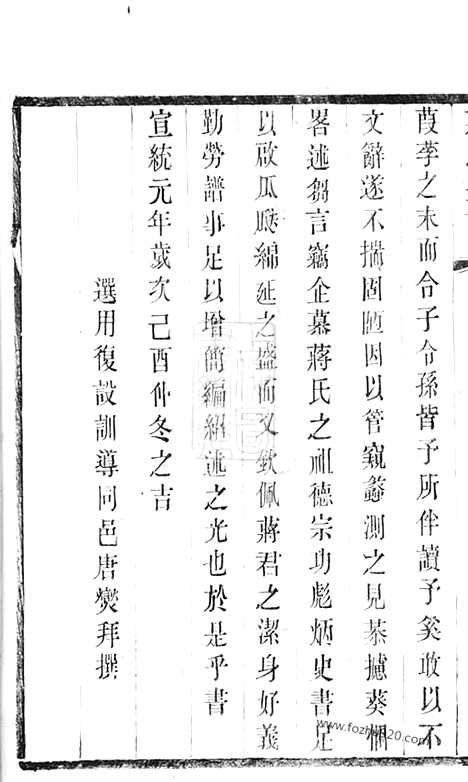 葭莩之末而令子令孫皆予所伴讀予奚敢以不
文辭遂不揣固陋因以管窺蠡測之見恭攄葵悃
畧述芻言竊企慕蔣氏之祖德宗功彪炳史書足
以啟瓜瓞綿延之盛而又欽佩蔣君之潔身好義
勤勞譜事足以增簡編紹述之光也於是乎書
宣統元年歲次己酉仲冬之吉
選用復設訓導同邑唐燮拜撰
www.fozhu920.com